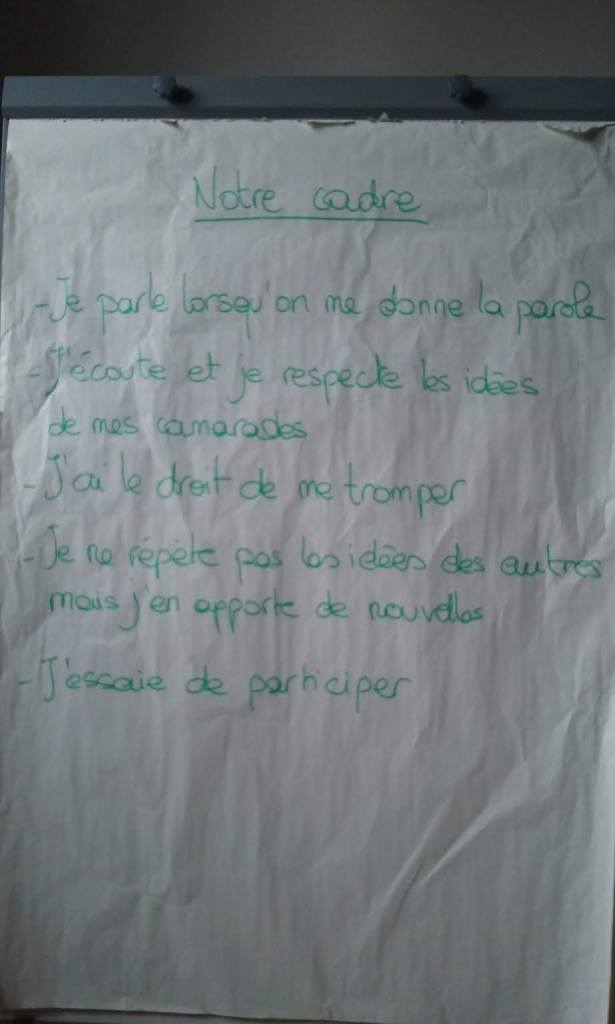 Notre cadre
- Je parle lorsqu'on me donne la parole
- J'écoute et je respecte les idées
de mes camarades
- J'ai le droit de me tromper
- Je ne répète pas les idées des autres
mais j'en apporte de nouvelles
- J'essaie de participer